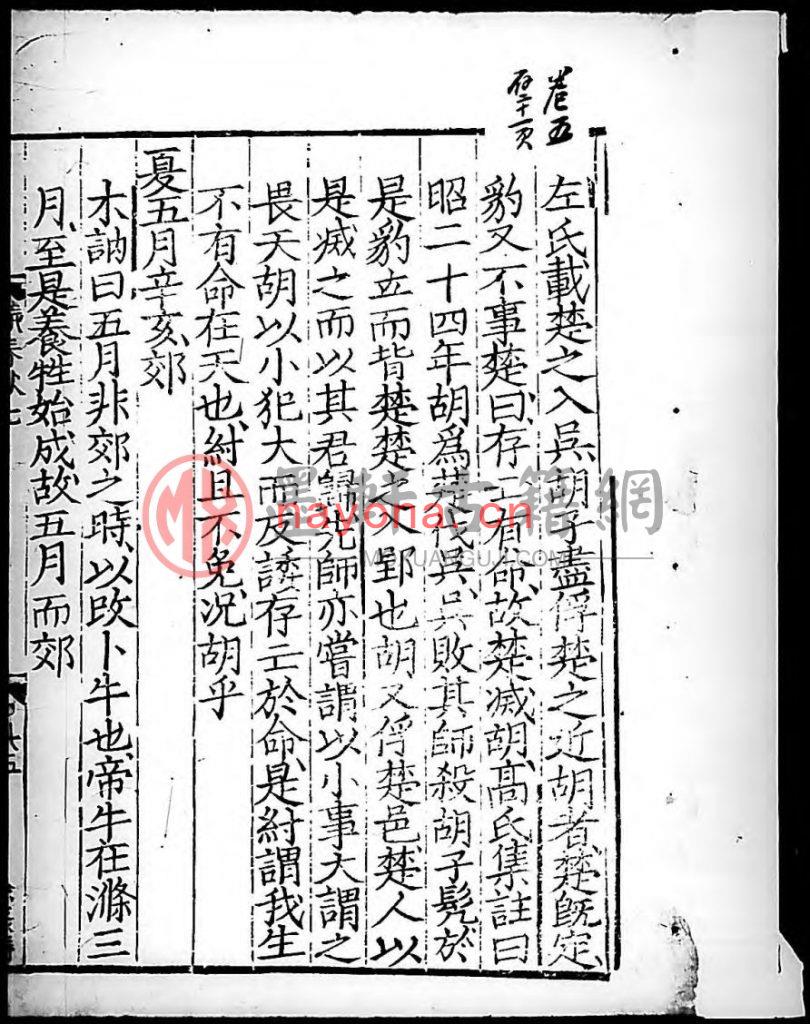 卷五
左氏載楚之入吳胡子盡俘楚之近胡者楚旣定
豹又不事楚曰存亡有命故楚滅胡高氏集註曰
昭二十四年胡爲楚伐吳吳敗其師殺胡子髡於
是豹立而背楚楚之入郢也胡又俘楚邑楚人以
是滅之而以其君歸先師亦嘗謂以小事大謂之
畏天胡以小犯大而反諉存亡於命是紂謂我生
不有命在天也紂且不免況胡乎
夏五月辛亥郊
木訥曰五月非郊之時以改卜牛也帝牛在滌三
月至是養牲始成故五月而郊
墨軒古籍網
nayona.cn